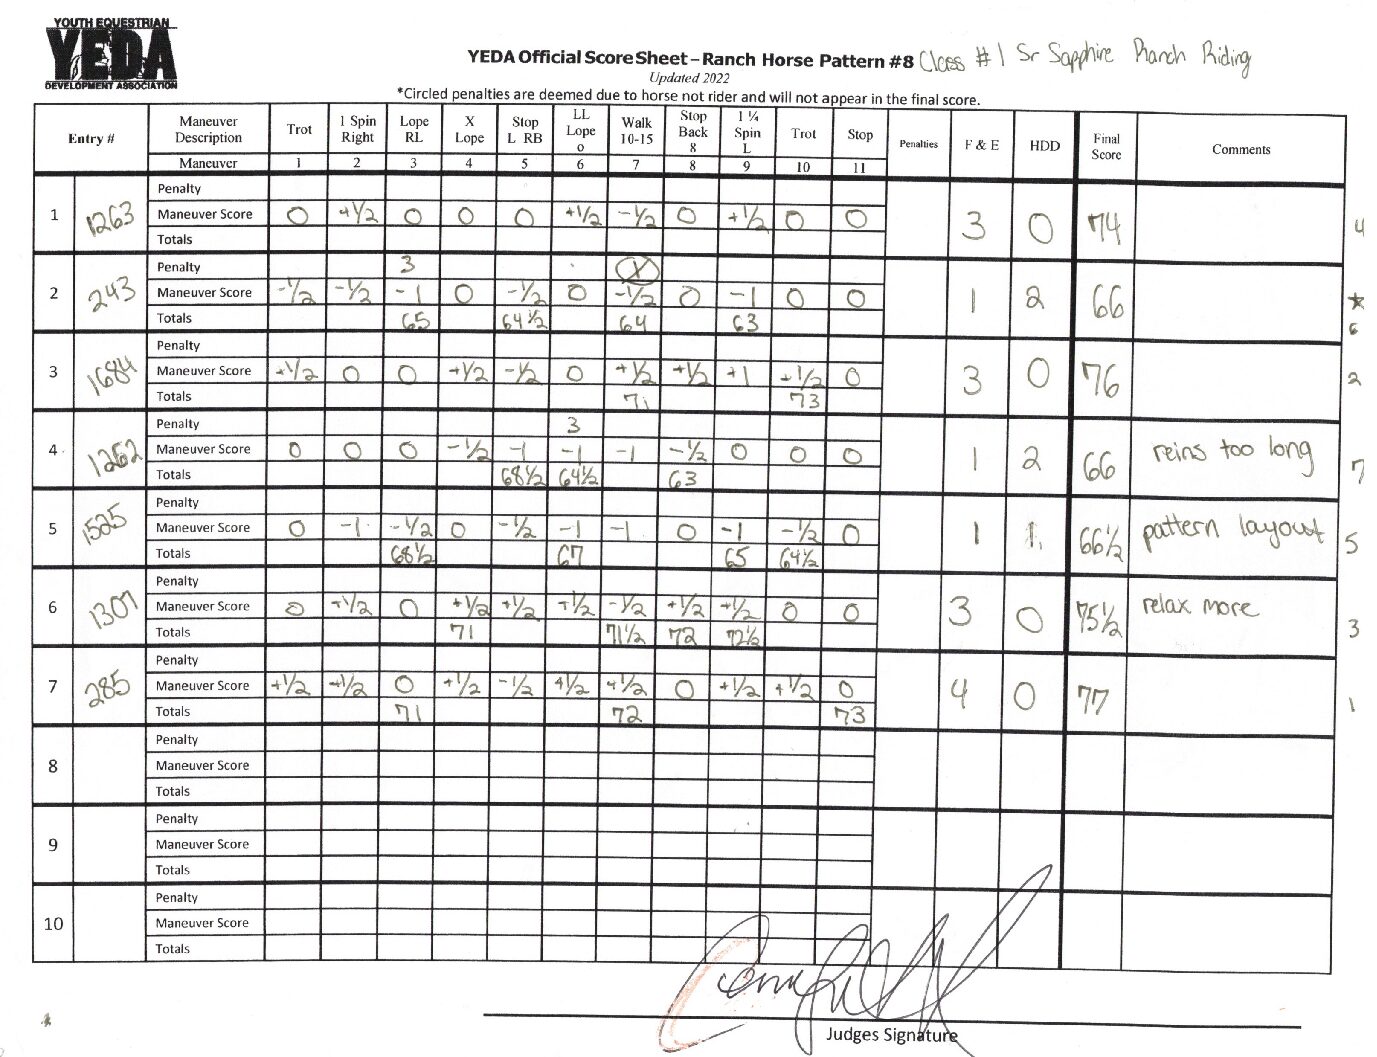 YOUTH EQUESTRIAN
YEDA
DEVELOPMENT ASSOCIATION
YEDA Official Score Sheet – Ranch Horse Pattern #8 Class #1 Sr Sapphire Ranch Riding
Updated 2022
*Circled penalties are deemed due to horse not rider and will not appear in the final score.
Entry # Maneuver Description Trot 1 Spin Right Lope RL X Lope Stop L RB LL Lope o Walk 10-15 Stop Back 8 1 ¼ Spin L Trot Stop Penalties F & E HDD Final Score Comments
Maneuver 1 2 3 4 5 6 7 8 9 10 11
Penalty
1 1263 Maneuver Score 0 +1/2 0 0 0 +1/2 -1/2 0 +1/2 0 0 3 0 74 4
Totals
Penalty 3 X
2 243 Maneuver Score -1/2 -1/2 -1 0 -1/2 0 -1/2 0 -1 0 0 1 2 66 ★ 6
Totals 65 64 1/2 64 63
Penalty
3 1684 Maneuver Score +1/2 0 0 +1/2 -1/2 0 +1/2 +1/2 +1 +1/2 0 3 0 76 2
Totals 71 73
Penalty 3
4 1262 Maneuver Score 0 0 0 -1/2 -1 -1 -1 -1/2 0 0 0 1 2 66 reins too long 7
Totals 68 1/2 64 1/2 63
Penalty
5 1525 Maneuver Score 0 -1 -1/2 0 -1/2 -1 -1 0 -1 -1/2 0 1 1 66 1/2 pattern layout 5
Totals 68 1/2 67 65 64 1/2
Penalty
6 1307 Maneuver Score 0 +1/2 0 +1/2 +1/2 +1/2 -1/2 +1/2 +1/2 0 0 3 0 75 1/2 relax more 3
Totals 71 71 1/2 72 72 1/2
Penalty
7 285 Maneuver Score +1/2 +1/2 0 +1/2 -1/2 +1/2 +1/2 0 +1/2 +1/2 0 4 0 77 1
Totals 71 72 73
Penalty
8 Maneuver Score
Totals
Penalty
9 Maneuver Score
Totals
Penalty
10 Maneuver Score
Totals
Judges Signature